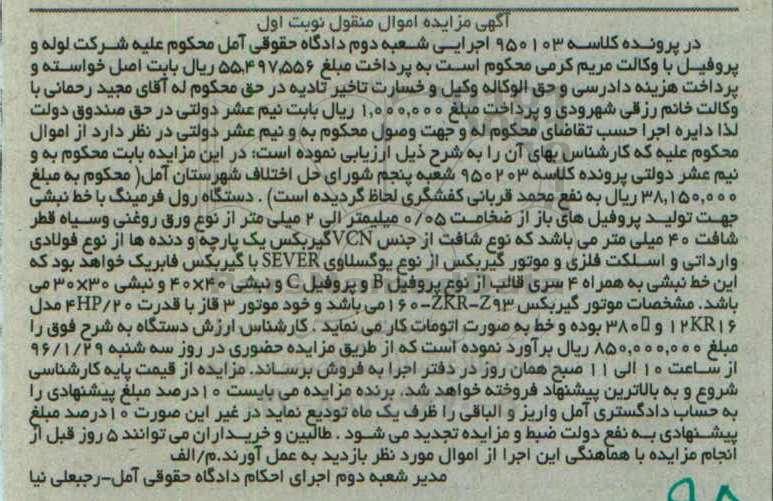 آگهی مزایده اموال منقول نوبت اول
در پرونده کلاسه ۹۵۰۱۰۳ اجرایی شعبه دوم دادگاه حقوقی آمل محکوم علیه شرکت لوله و
پروفیل با وکالت مریم کرمی محکوم است به پرداخت مبلغ ۵۵,۴۹۷,۵۵۶ ریال بابت اصل خواسته و
پرداخت هزینه دادرسی و حق الوکاله وکیل و خسارت تاخیر تادیه در حق محکوم له آقای مجید رحمانی با
وکالت خانم رزقی شهرودی و پرداخت مبلغ ۱,۰۰۰,۰۰۰ ریال بابت نیم عشر دولتی در حق صندوق دولت
لذا دایره اجرا حسب تقاضای محکوم له و جهت وصول محکوم به و نیم عشر دولتی در نظر دارد از اموال
محکوم علیه که کارشناس بهای آن را به شرح ذیل ارزیابی نموده است: در این مزایده بابت محکوم به و
نیم عشر دولتی پرونده کلاسه ۹۵۰۲۰۳ شعبه پنجم شورای حل اختلاف شهرستان آمل( محکوم به مبلغ
۳۸,۱۵۰,۰۰۰ ریال به نفع محمد قربانی کفشگری لحاظ گردیده است) . دستگاه رول فرمینگ با خط نبشی
جهت تولید پروفیل های باز از ضخامت ۰/۰۵ میلیمتر الی ۲ میلی متر از نوع ورق روغنی وسیاه قطر
شافت ۴۰ میلی متر می باشد که نوع شافت از جنس VCNگیربکس یک پارچه و دنده ها از نوع فولادی
وارداتی و اسلکت فلزی و موتور گیربکس از نوع یوگسلاوی SEVER با گیربکس فابریک خواهد بود که
این خط نبشی به همراه ۴ سری قالب از نوع پروفیل B و پروفیل C و نبشی ۴۰×۴۰ و نبشی ۳۰×۳۰ می
باشد. مشخصات موتور گیربکس ۱۶۰-ZKR-Z۹۳ می باشد و خود موتور ۳ فاز با قدرت ۴HP/۲۰ مدل
۱۲KR۱۶ و ۳۸۰ بوده و خط به صورت اتومات کار می نماید . کارشناس ارزش دستگاه به شرح فوق را
مبلغ ۸۵۰,۰۰۰,۰۰۰ ریال برآورد نموده است که از طریق مزایده حضوری در روز سه شنبه ۹۶/۱/۲۹
از ساعت ۱۰ الی ۱۱ صبح همان روز در دفتر اجرا به فروش برساند. مزایده از قیمت پایه کارشناسی
شروع و به بالاترین پیشنهاد فروخته خواهد شد. برنده مزایده می بایست ۱۰درصد مبلغ پیشنهادی را
به حساب دادگستری آمل واریز و الباقی را ظرف یک ماه تودیع نماید در غیر این صورت ۱۰درصد مبلغ
پیشنهادی به نفع دولت ضبط و مزایده تجدید می شود . طالبین و خریداران می توانند ۵ روز قبل از
انجام مزایده با هماهنگی این اجرا از اموال مورد نظر بازدید به عمل آورند.م/الف
مدیر شعبه دوم اجرای احکام دادگاه حقوقی آمل-رجبعلی نیا